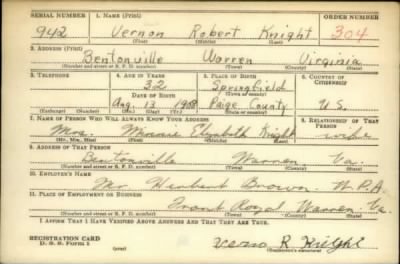 SERIAL NUMBER 1. NAME (Print) ORDER NUMBER
942 Vernon Robert Knight 304
(First) (Middle) (Last)
2. ADDRESS (Print)
Bentonville Warren Virginia
(Number and street or R. F. D. number) (Town) (County) (State)
3. TELEPHONE 4. AGE IN YEARS 5. PLACE OF BIRTH 6. COUNTRY OF CITIZENSHIP
32 Springfield
DATE OF BIRTH (Town or county)
Aug. 13 1908 Paige County U.S.
(Exchange) (Number) (Mo.) (Day) (Yr.) (State or country)
7. NAME OF PERSON WHO WILL ALWAYS KNOW YOUR ADDRESS 8. RELATIONSHIP OF THAT PERSON
Mrs. Minnie Elizabeth Knight wife
(Mr., Mrs., Miss) (First) (Middle) (Last)
9. ADDRESS OF THAT PERSON
Bentonville Warren Va.
(Number and street or R. F. D. number) (Town) (County) (State)
10. EMPLOYER'S NAME
Mr. Herbert Brown. W.P.A.
11. PLACE OF EMPLOYMENT OR BUSINESS
Front Royal Warren Va.
(Number and street or R. F. D. number) (Town) (County) (State)
I AFFIRM THAT I HAVE VERIFIED ABOVE ANSWERS AND THAT THEY ARE TRUE.
REGISTRATION CARD
D. S. S. Form 1 (over) Verno R Knight
(Registrant's signature)